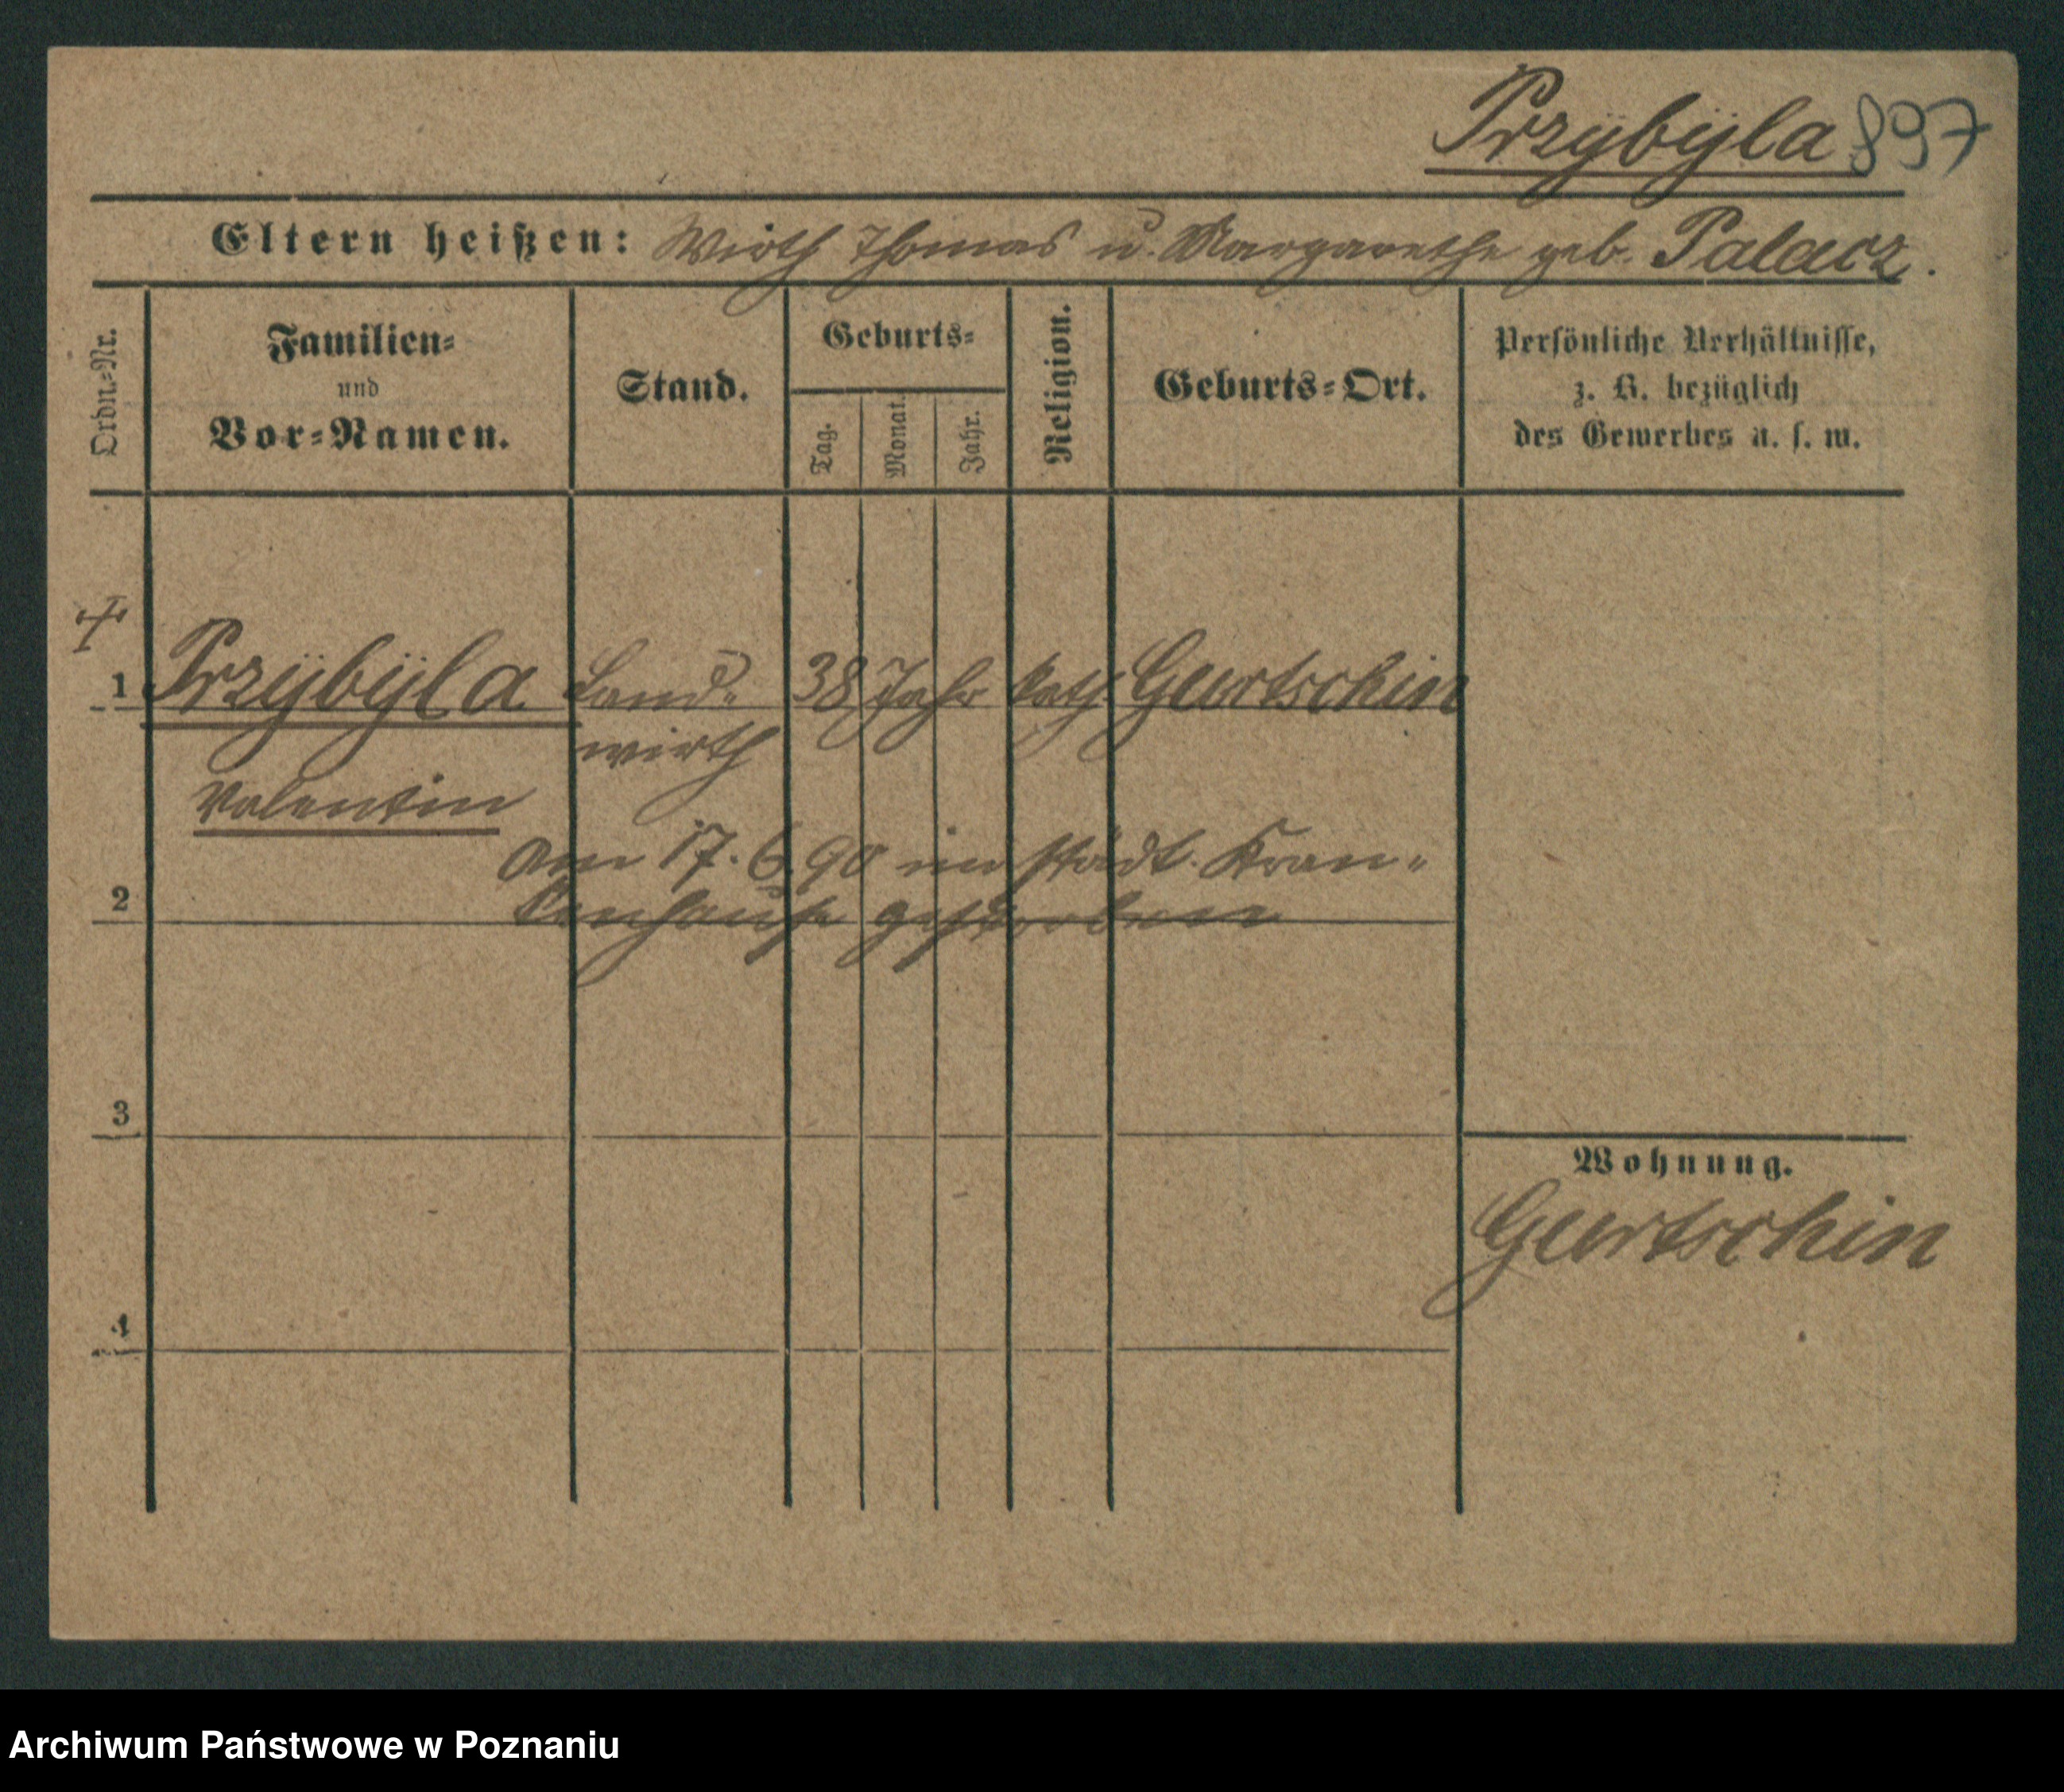 Przÿbÿla 897
Eltern heißen: Wirth Thomas u. Margarethe geb. Palacz.
Ordn.-Nr.
Familien-
und
Vor-Namen.
Stand.
Geburts-
Tag.
Monat.
Jahr.
Religion.
Geburts-Ort.
Persönliche Verhältnisse,
z. B. bezüglich
des Gewerbes u. s. w.
1 Przÿbÿla Land- 38 Jahr kath. Gurtschin
wirth
Valentin
am 17. 6. 90 im städt. Kran-
2 kenhause gestorben
3
Wohnung.
Gurtschin
4
Archiwum Państwowe w Poznaniu